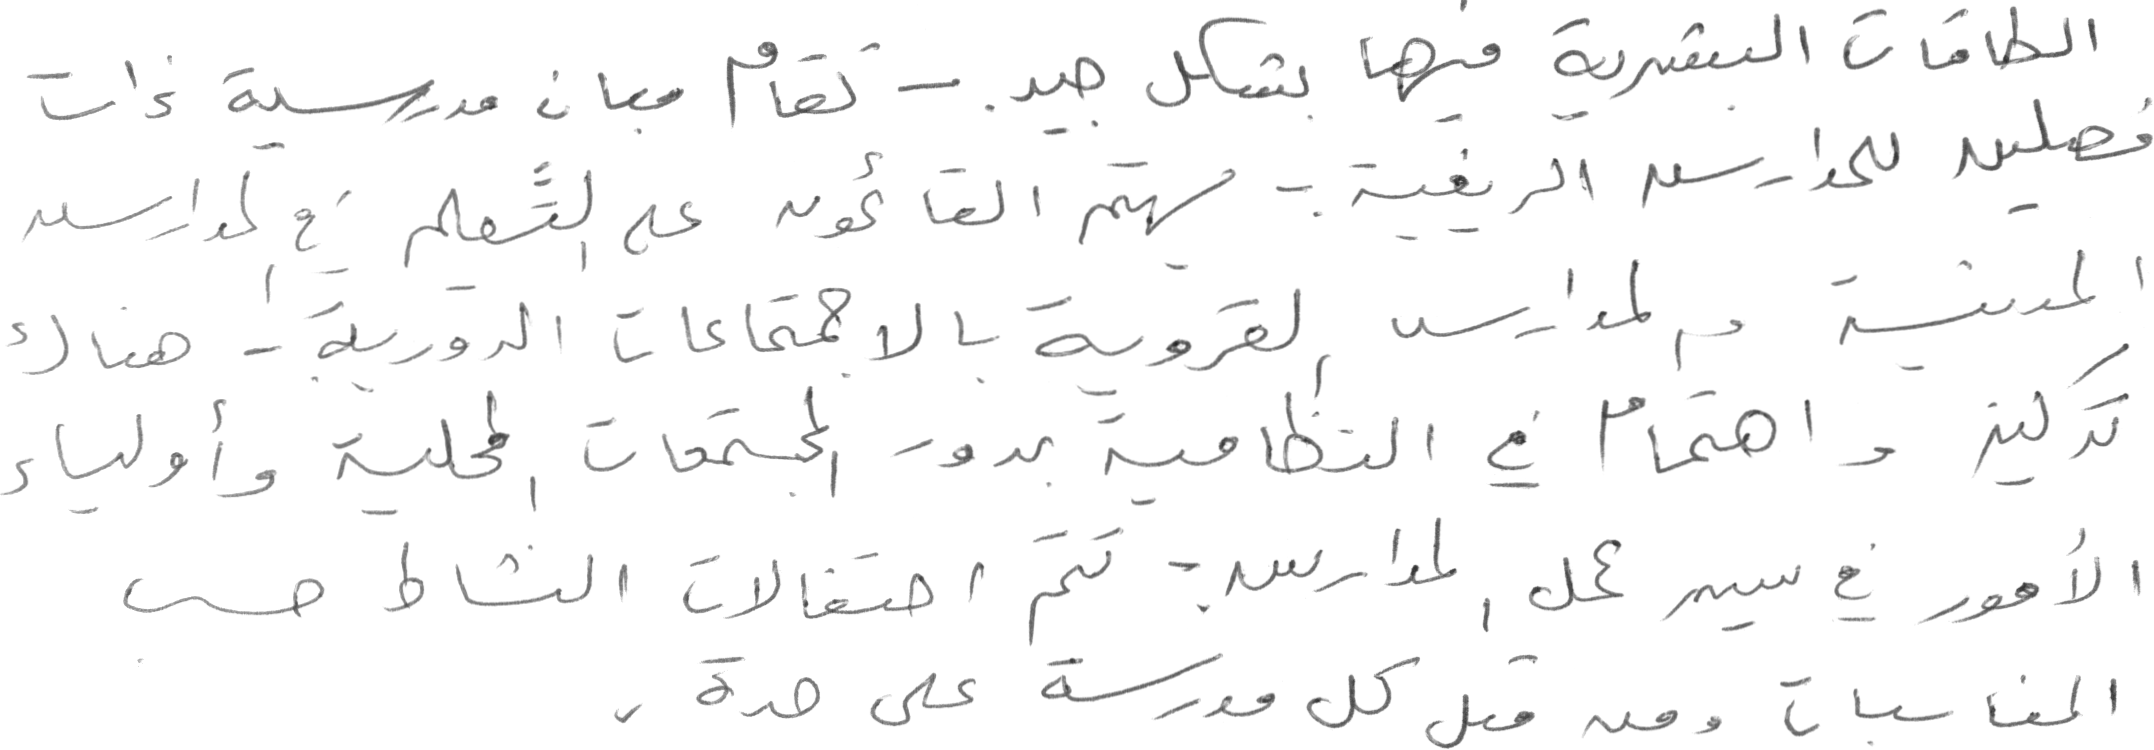 الطاقات البشرية فيها بشكل جيد. - تقام مبان مدرسية ذات
فصلين للمدارس الريفية. - يهتم القائمون على التَّعليم في المدارس
المدنية والمدارس القروية بالاجتماعات الدورية. - هناك
تركيز واهتمام في النظامية بدور المجتمعات المحلية وأولياء
الأمور في سير عمل المدارس. - تتم احتفالات النشاط حسب
المناسبات ومن قبل كل مدرسة على حدة.